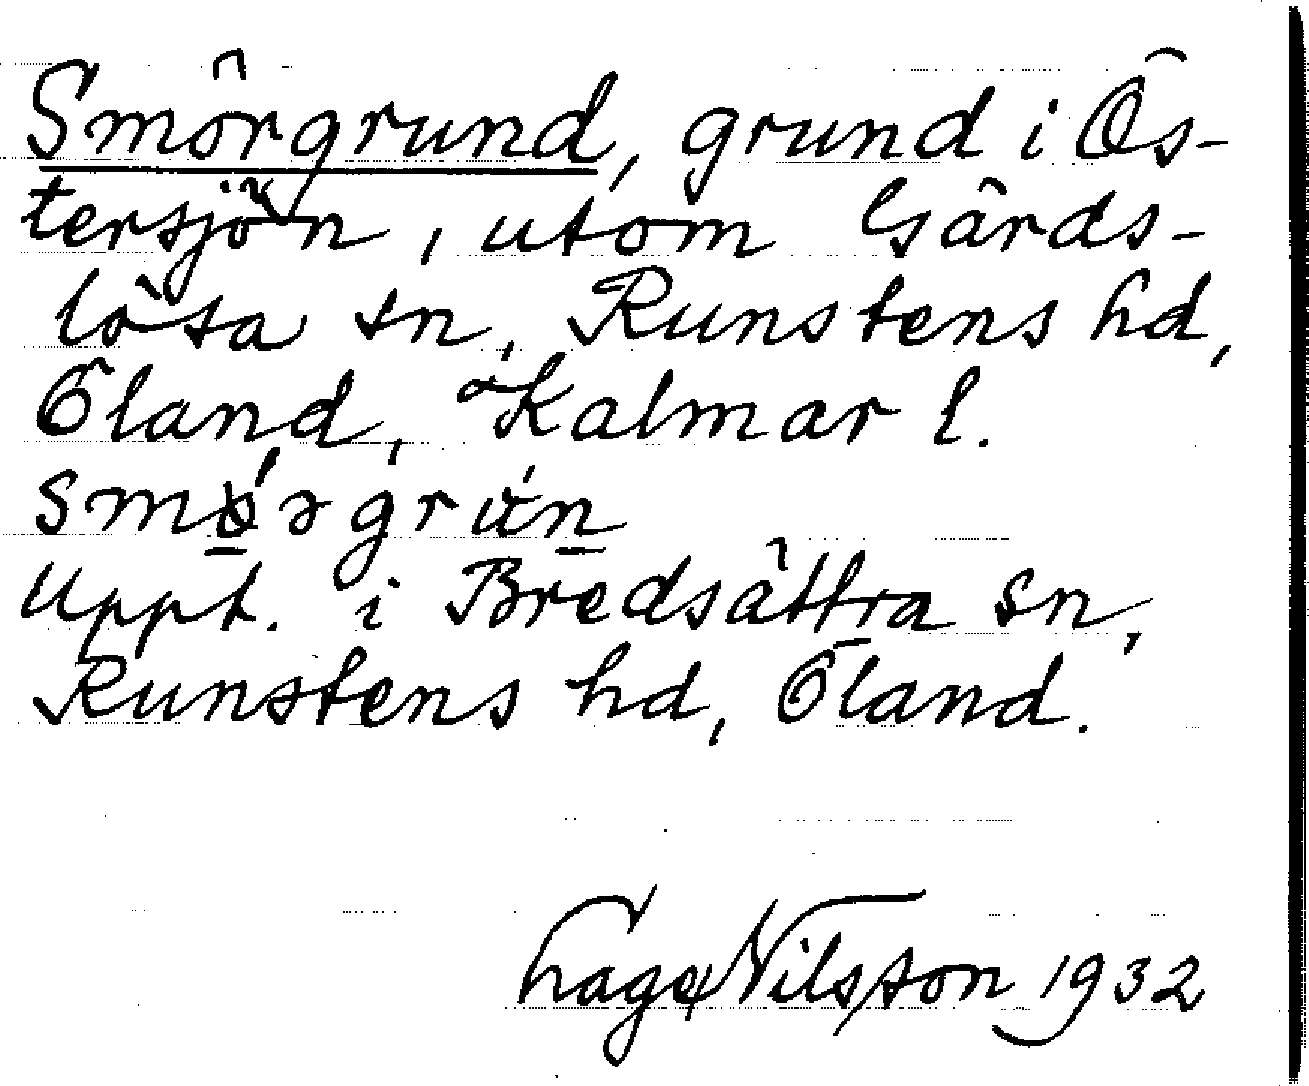 Smörgrund, grund i Ös-
tersjön, utom Gärds-
lösa sn, Runstens hd,
Öland, Kalmar l.
Uppt. i Bredsättra sn,
Runstens hd, Öland.
Nilsson 1932